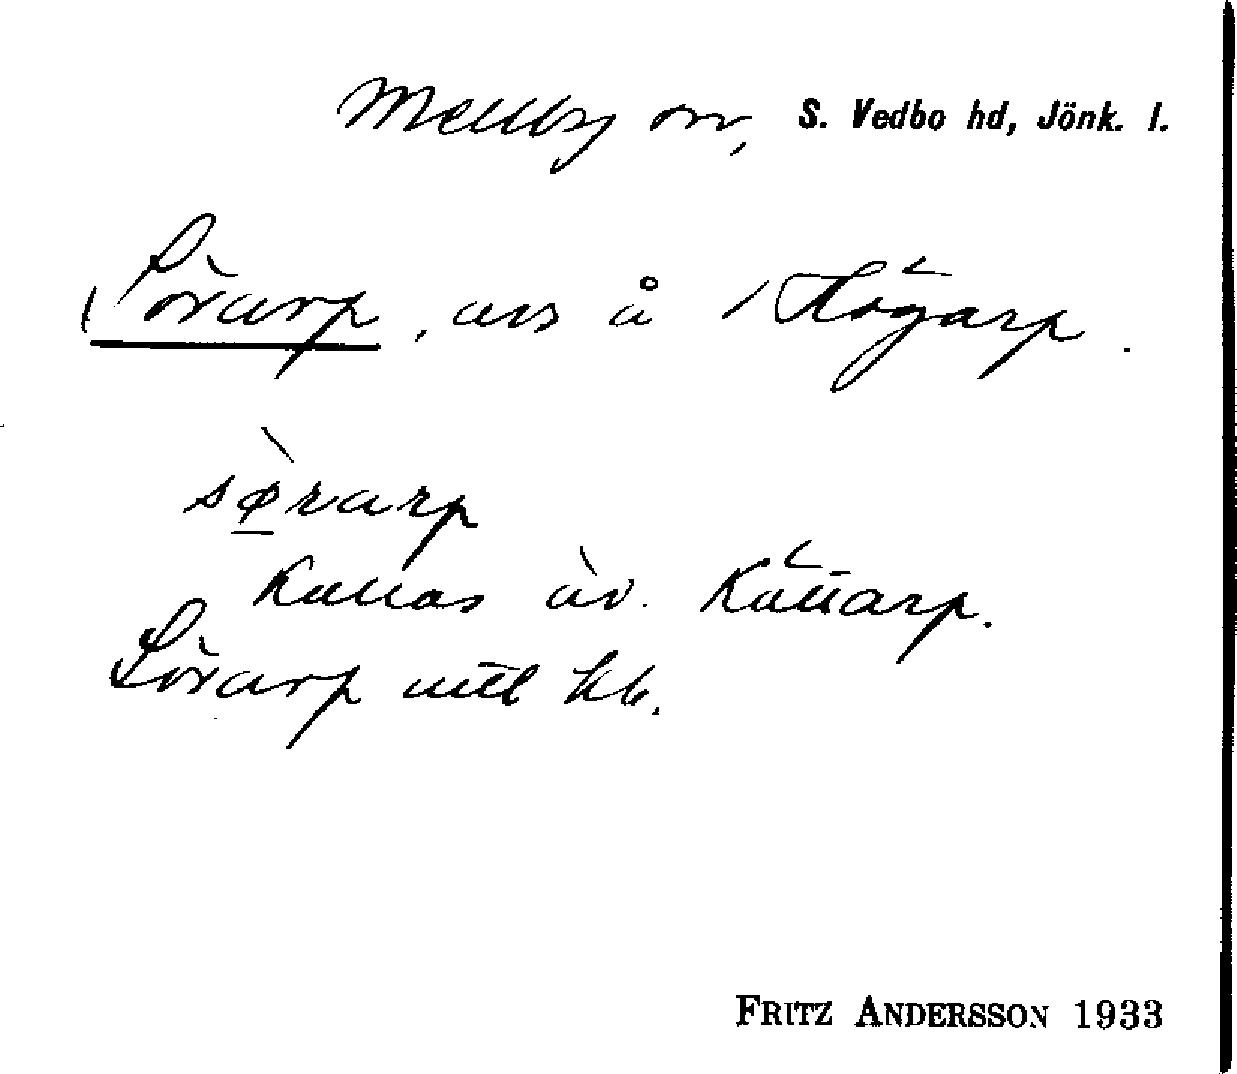 Mellby sn, S. Vedbo hd, Jönk. l.
Sörarp, avs å Högarp.
sørarp
Kallas äv. Källarp.
Sörarp
FRITZ ANDERSSON 1933